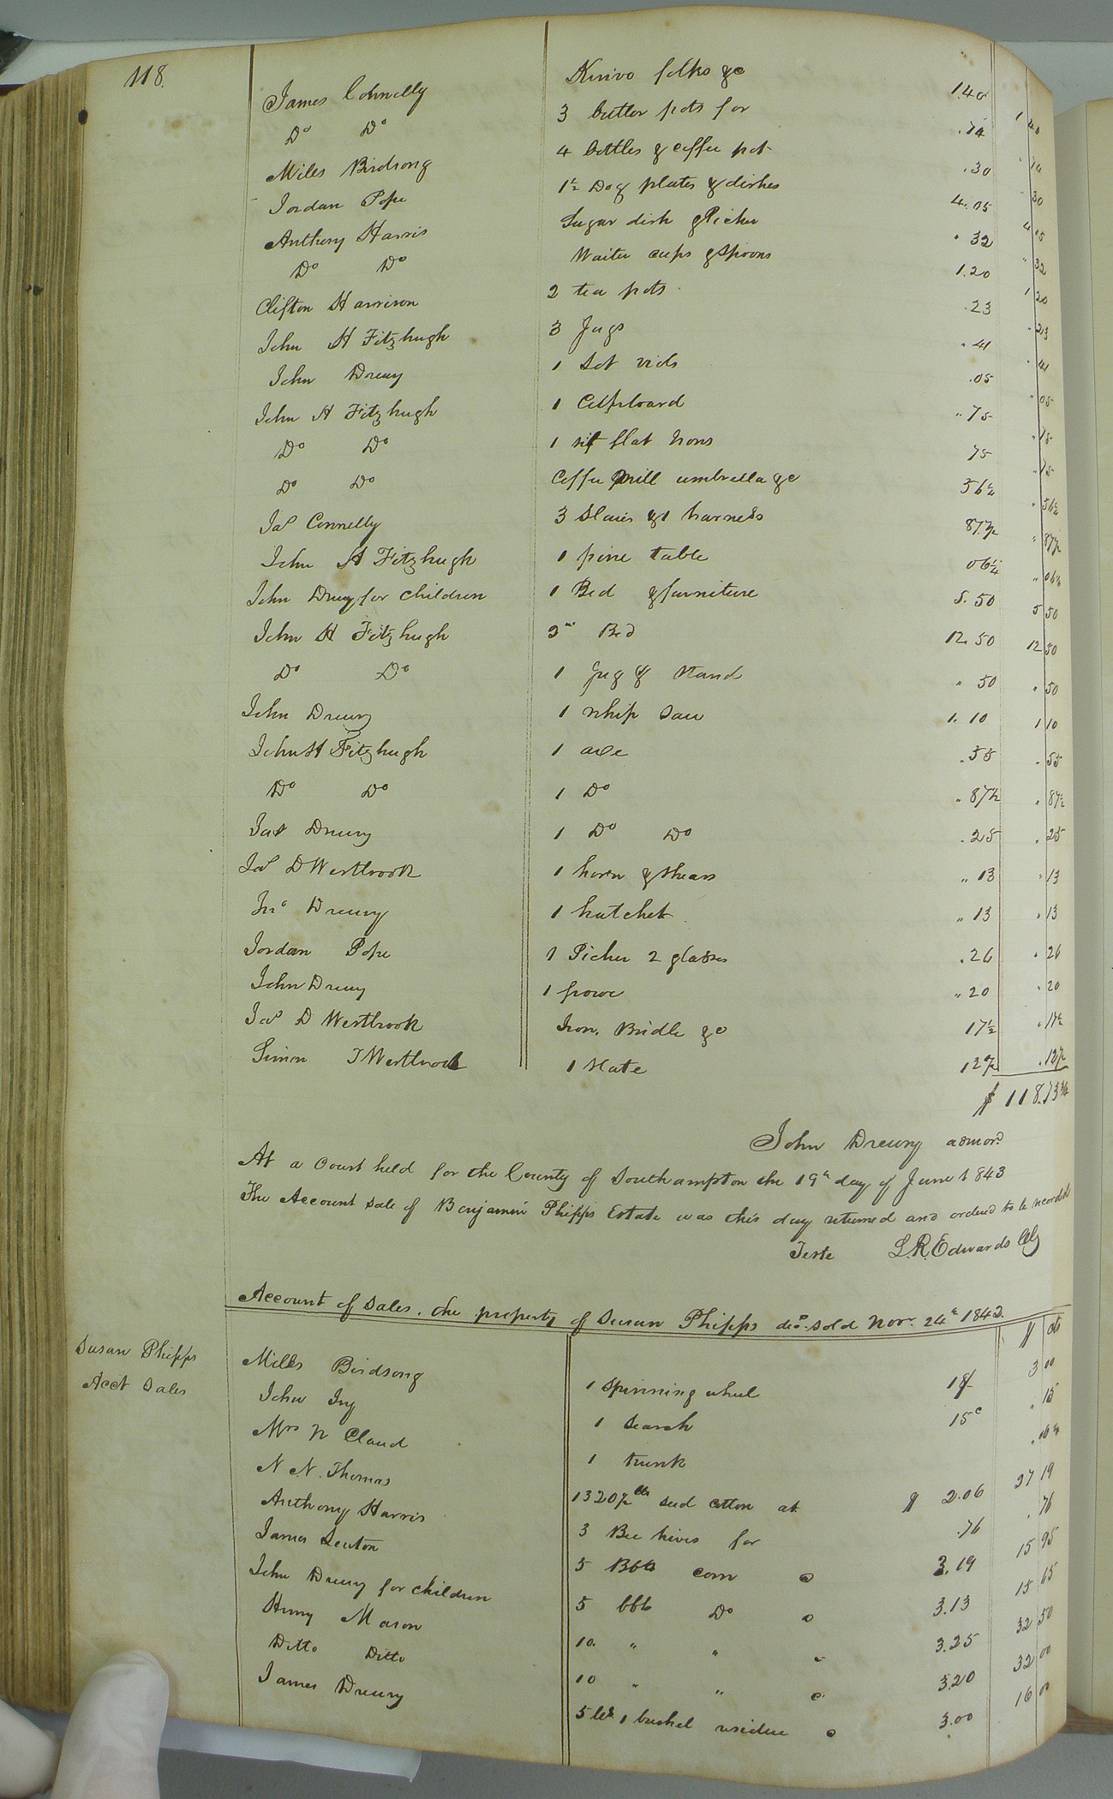 118.
James Connelly Knivs folks &c 1.40 1 40
Do Do 3 butter pots for .14 " 14
Miles Birdsong 4 bottles & coffee pot .30 " 30
Jordan Pope 1½ Doz plates & dishes 4.05 4 05
Anthony Harris Sugar dish & Picher " 32 " 32
Do Do Waiter cups & Spoons 1.20 1 20
Clifton Harrison 2 tea pots .23 " 23
John H Fitzhugh 3 Jugs " 41 " 41
John Drewry 1 Sot .05 " 05
John H Fitzhugh 1 Cupboard " 75 " 75
Do Do 1 flat Irons 75 " 75
Do Do Coffee Mill umbrella &c 56¼ " 56¼
Jas Connelly 3 Slaies & 1 harness 87½ " 87½
John H Fitzhugh 1 pine table 06¼ " 06¼
John Drewry for children 1 Bed & furniture 5.50 5 50
John H Fitzhugh Bed 12.50 12 50
Do Do 1 Jug & Stand " 50 " 50
John Drewry 1 whip saw 1.10 1 10
John H Fitzhugh 1 axe .55 " 55
Do Do 1 Do " 87½ " 87½
Jas Drewry 1 Do Do .25 " 25
Jas D Westbrook 1 horn & shears " 13 " 13
Jno Drewry 1 hatchet " 13 " 13
Jordan Pope 1 Picher 2 glasses .26 " 26
John Drewry 1 frow " 20 " 20
Jas D Westbrook Iron, Bridle &c 17½ " 17½
Simon T Westbrook 1 Slate 12½ " 12½
$ 118.13¾
John Drewry admor.
At a Court held for the County of Southampton the 19th day of June 1843
The Account Sale of Benjamin Phipps Estate was this day returned and ordered to be recorded
Teste L.R. Edwards Clk
Account of Sales. the property of Susan Phipps decd. sold Nov. 24th 1842 $ cts
Susan Phipps
Acct Sales
Mills Birdsong 1 Spinning wheel 3 00
John Ivy 1 Search 15c " 15
Mrs N Claud 1 trunk
N. N. Thomas 1320½ lbs seed cotton at $ 2.06 27 19
Anthony Harris 3 Bee hives for .76 " 76
James Lenton 5 Bbls corn @ 3.19 15 95
John Drewry for children 5 bbls Do @ 3.13 15 65
Henry Mason 10 " " @ 3.25 32 50
Ditto Ditto 10 " " @ 3.20 32 00
James Drewry 5 bls 1 bushel residue @ 3.00 16 00